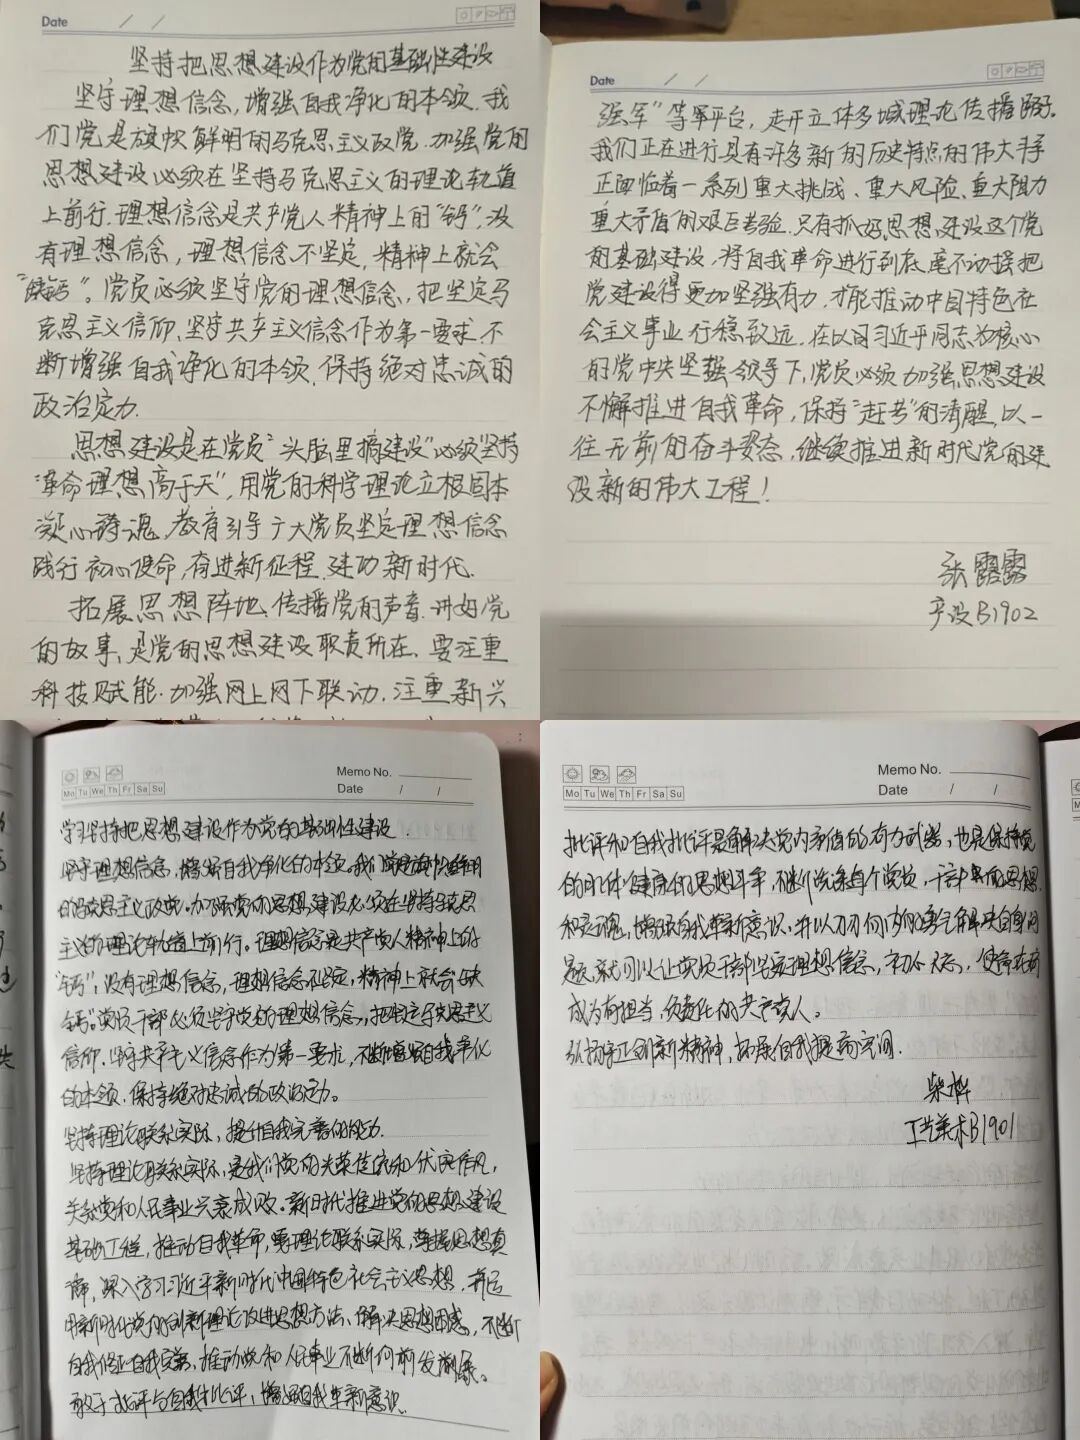 Date / /
坚持把思想建设作为党的基础性建设
坚守理想信念,增强自我净化的本领.我
们党是旗帜鲜明的马克思主义政党.加强党的
思想建设必须在坚持马克思主义的理论轨道
上前行.理想信念是共产党人精神上的“钙”,没
有理想信念,理想信念不坚定,精神上就会
“缺钙”。党员必须坚守党的理想信念,把坚定马
克思主义信仰、坚守共产主义信念作为第一要求.不
断增强自我净化的本领.保持绝对忠诚的
政治定力.
思想建设是在党员“头脑里搞建设”必须坚持
“革命理想高于天”,用党的科学理论立根固本
凝心铸魂,教育引导广大党员坚定理想信念
践行初心使命,奋进新征程,建功新时代.
拓展思想阵地.传播党的声音.讲好党
的故事,是党的思想建设职责所在.要注重
科技赋能.加强网上网下联动.注重新兴
Date / /
强军”等军平台,走开立体多域理论传播路子.
我们正在进行具有许多新的历史特点的伟大斗争
正面临着一系列重大挑战、重大风险、重大阻力
重大矛盾的艰巨考验.只有抓好思想建设这个党
的基础建设,将自我革命进行到底,毫不动摇把
党建设得更加坚强有力.才能推动中国特色社
会主义事业行稳致远.在以习近平同志为核心
的党中央坚强领导下,党员必须加强思想建设
不懈推进自我革命,保持“赶考”的清醒,以一
往无前的奋斗姿态,继续推进新时代党的建
设新的伟大工程!
张露露
产设B1902
Memo No.
Mo Tu We Th Fr Sa Su
Date / /
学习坚持把思想建设作为党的基础性建设.
坚守理想信念,增强自我净化的本领.我们党是旗帜鲜明
的马克思主义政党.加强党的思想建设必须在坚持马克思
主义的理论轨道上前行。理想信念是共产党人精神上的
“钙”,没有理想信念,理想信念不坚定,精神上就会“缺
钙”。党员干部必须坚守党的理想信念,把坚定马克思主义
信仰、坚守共产主义信念作为第一要求,不断增强自我净化
的本领,保持绝对忠诚的政治定力。
坚持理论联系实际,提升自我完善的能力.
坚持理论联系实际,是我们党的光荣传统和优良作风,
关系党和人民事业兴衰成败。新时代推进党的思想建设
基础工程,推动自我革命,要理论联系实际,掌握思想真
谛,深入学习习近平新时代中国特色社会主义思想,善于
用新时代党的创新理论改进思想方法、解决思想困惑,不断
自我修正自我完善,推动党和人民事业不断向前发展。
敢于批评与自我批评,增强自我革新意识.
Memo No.
Mo Tu We Th Fr Sa Su
Date / /
批评和自我批评是解决党内矛盾的有力武器,也是保持党
的肌体健康的思想斗争,不断洗涤每个党员、干部的思想
和灵魂,增强自我革新意识.并以刀刃向内的勇气解决自身问
题,就可以让党员干部坚定理想信念,初心不忘,使命在肩
成为有担当,负责任的共产党人。
弘扬守正创新精神,拓展自我提高空间.
柴桦
工艺美术B1901